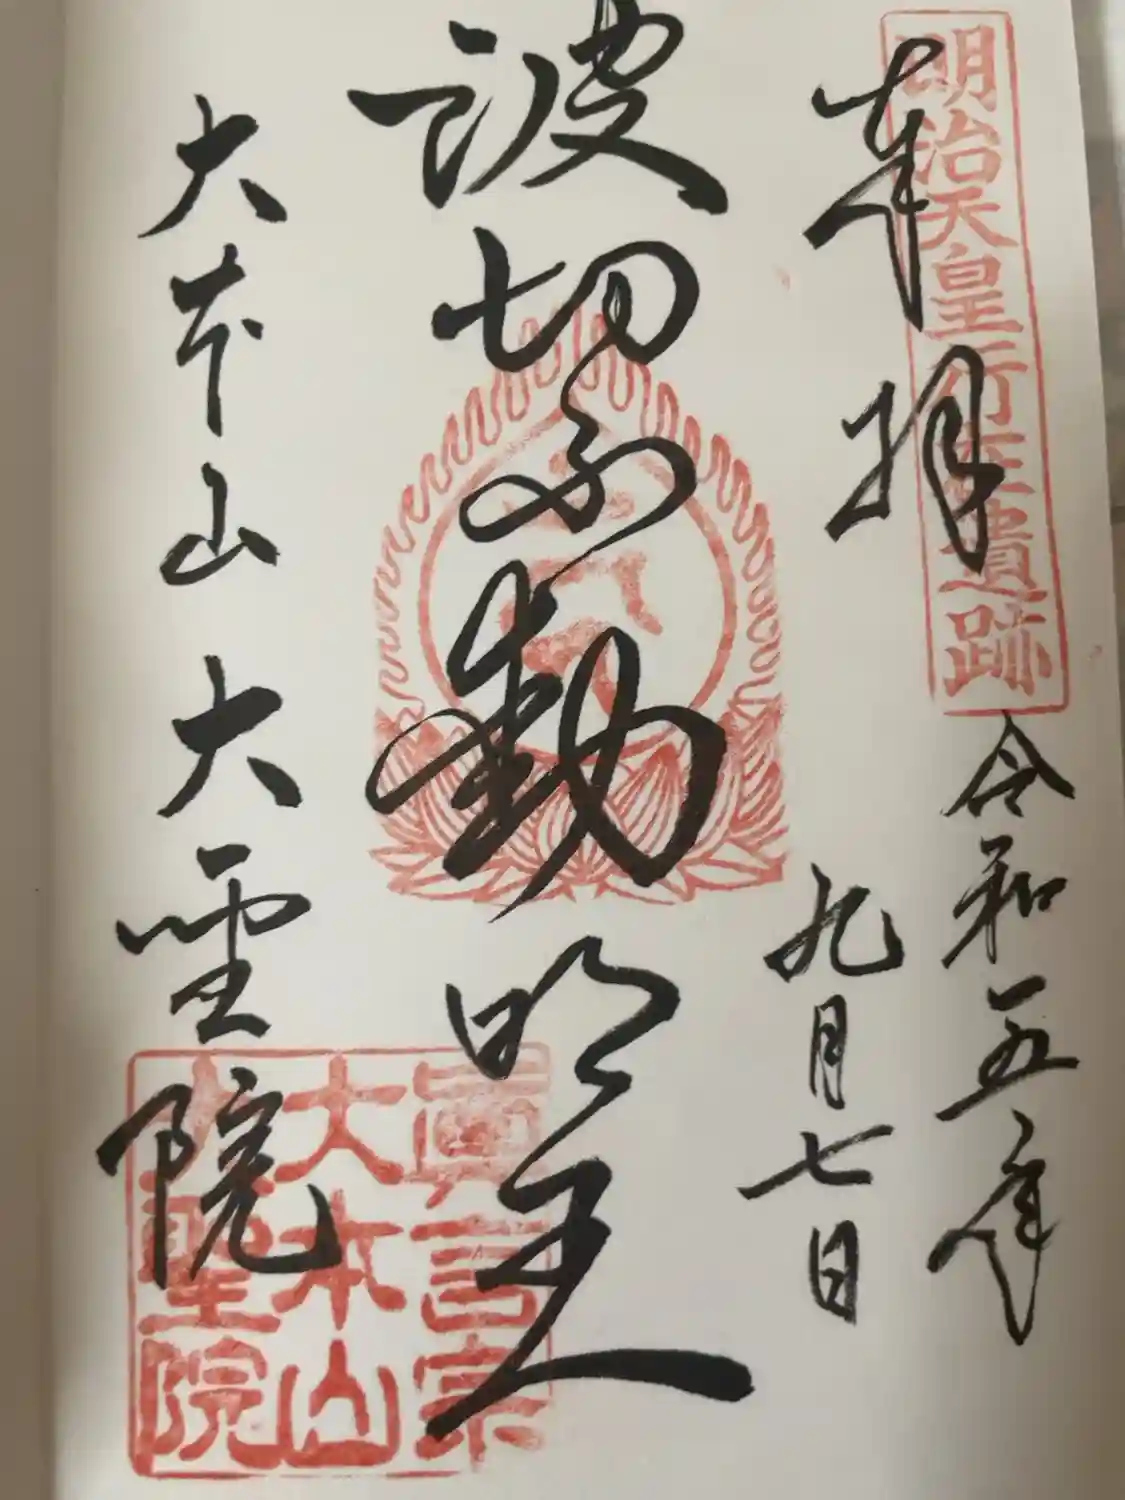 明治天皇行在遺跡
奉拝
令和五年
九月七日
波切不動明王
大本山 大聖院
眞言宗
大本山
大聖院